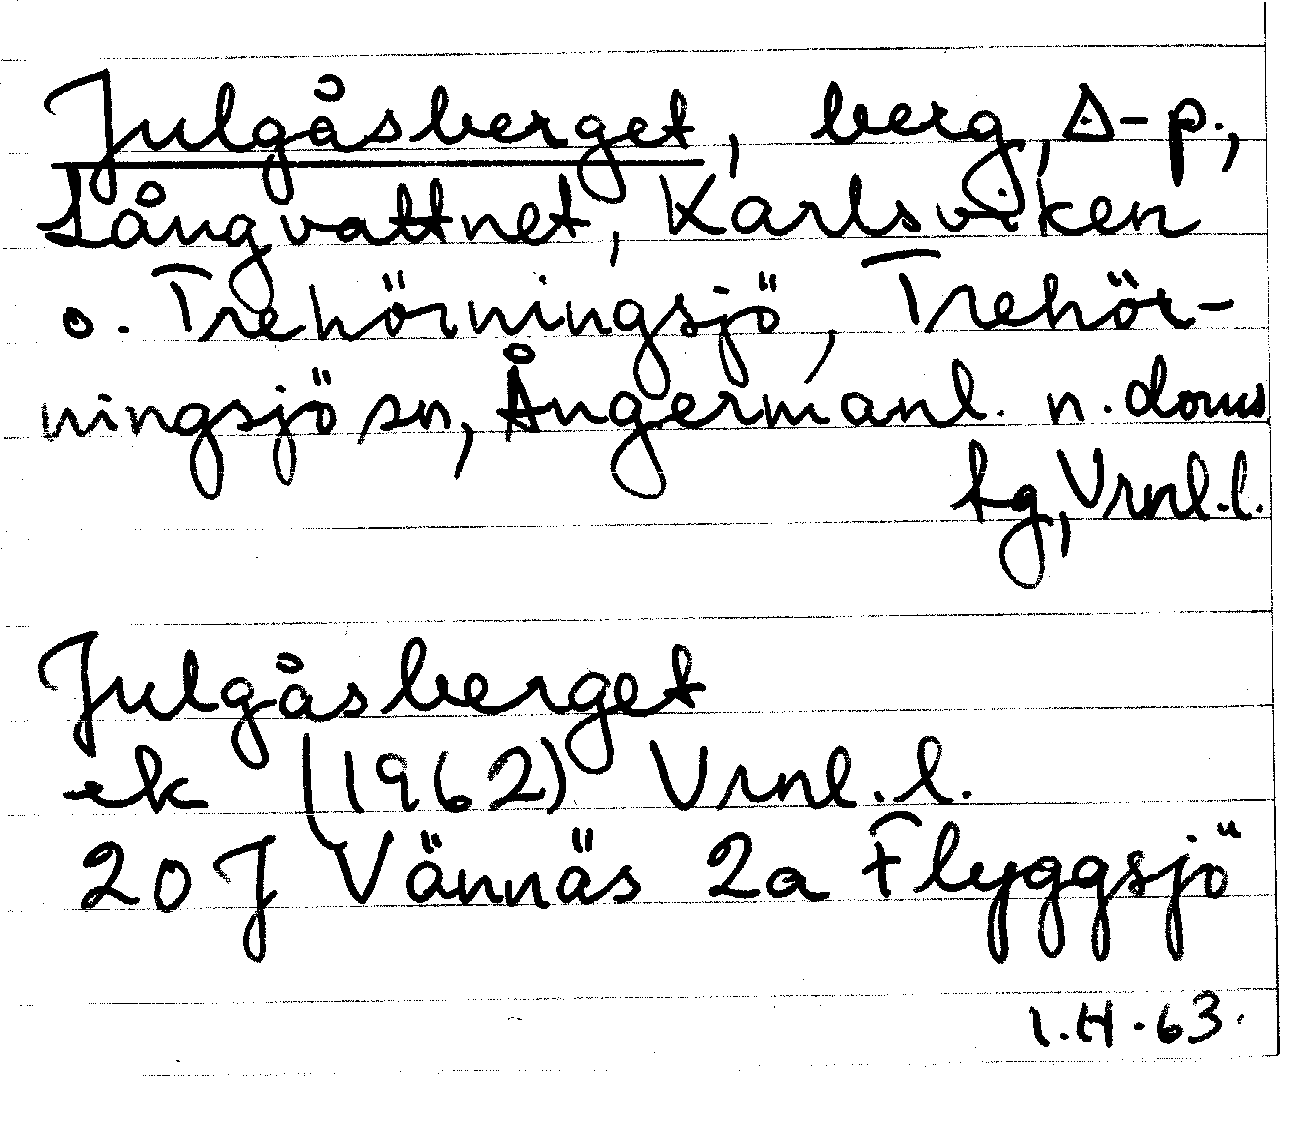 Julgåsberget, berg, Δ-p.,
Långvattnet, Karlsviken
o. Trehörningsjö, Trehör-
ningsjö sn, Ångermanl. n. doms
tg, Vrnl.l.
Julgåsberget
ek (1962) Vrnl.l.
20 J Vännäs 2a Flyggsjö
I.H.63.